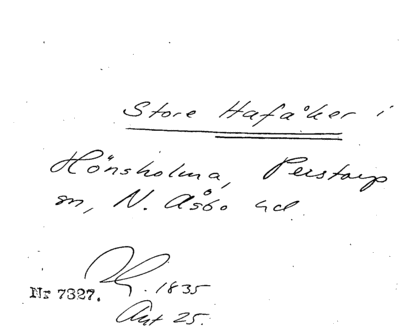 Store Hafåker i
Hönsholma, Perstorp
sn, N. Åsbo hd.
Nr 7327. 1835
Ant 25.